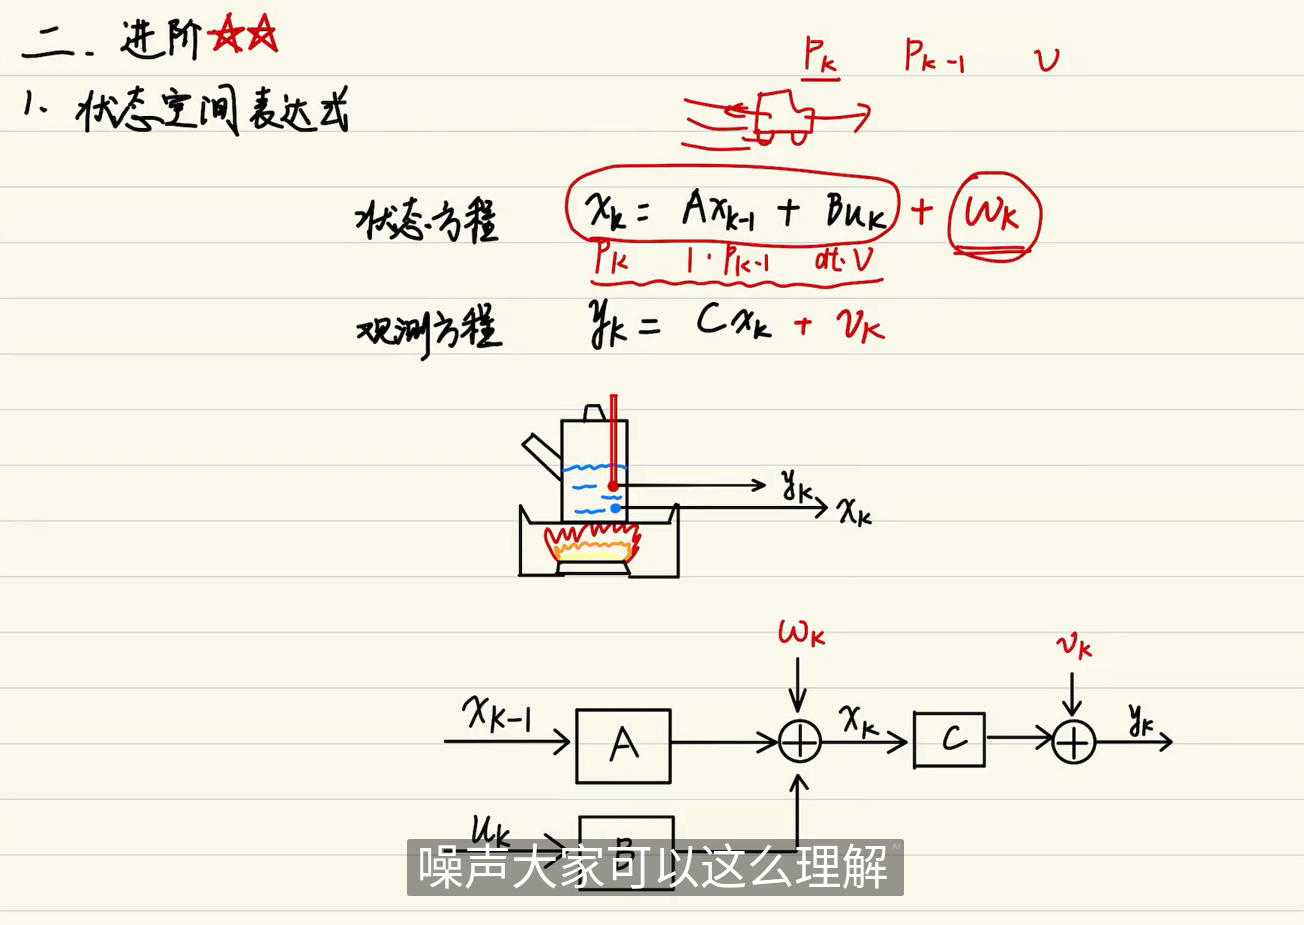 二. 进阶
1. 状态空间表达式
Pk Pk-1 v
状态方程 xk = Axk-1 + Buk + wk
Pk 1·Pk-1 dt·v
观测方程 yk = Cxk + vk
yk
xk
wk vk
xk-1 A xk C yk
uk B
噪声大家可以这么理解
AI